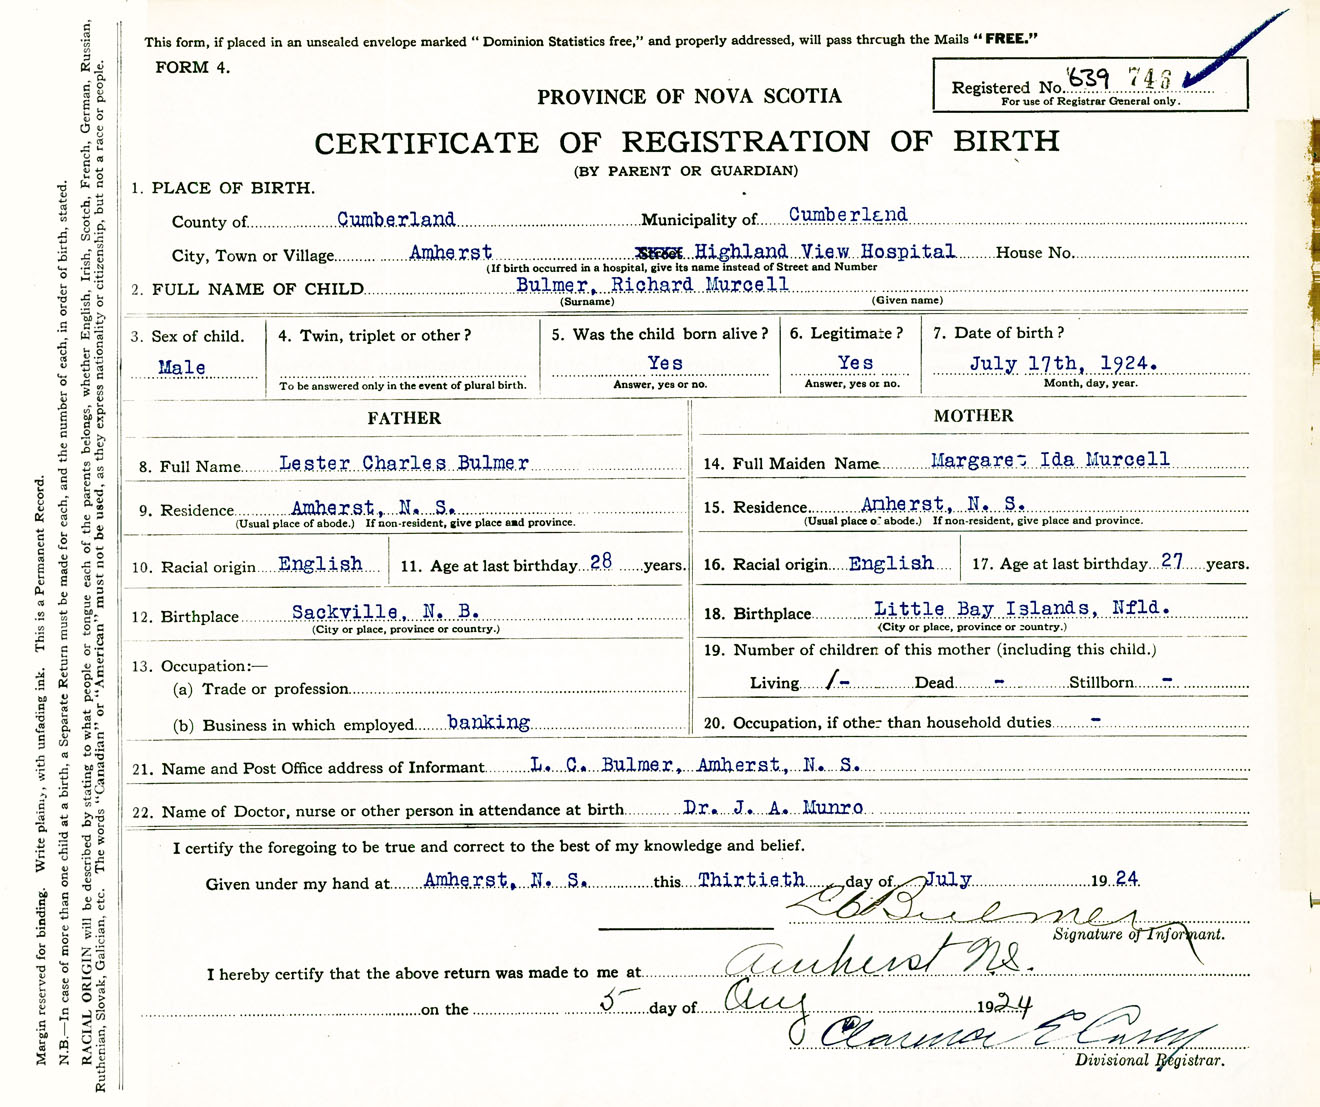 This form, if placed in an unsealed envelope marked “ Dominion Statistics free,” and properly addressed, will pass through the Mails “ FREE.”
FORM 4.
Registered No. 639 746
For use of Registrar General only.
PROVINCE OF NOVA SCOTIA
CERTIFICATE OF REGISTRATION OF BIRTH
(BY PARENT OR GUARDIAN)
1. PLACE OF BIRTH.
County of Cumberland Municipality of Cumberland
City, Town or Village Amherst Street Highland View Hospital House No.
(If birth occurred in a hospital, give its name instead of Street and Number
2. FULL NAME OF CHILD Bulmer, Richard Murcell
(Surname) (Given name)
3. Sex of child. 4. Twin, triplet or other ? 5. Was the child born alive ? 6. Legitimate ? 7. Date of birth ?
Male Yes Yes July 17th, 1924.
To be answered only in the event of plural birth. Answer, yes or no. Answer, yes or no. Month, day, year.
FATHER MOTHER
8. Full Name Lester Charles Bulmer 14. Full Maiden Name Margaret Ida Murcell
9. Residence Amherst, N. S. 15. Residence Amherst, N. S.
(Usual place of abode.) If non-resident, give place and province. (Usual place of abode.) If non-resident, give place and province.
10. Racial origin English 11. Age at last birthday 28 years. 16. Racial origin English 17. Age at last birthday 27 years.
12. Birthplace Sackville, N. B. 18. Birthplace Little Bay Islands, Nfld.
(City or place, province or country.) (City or place, province or country.)
13. Occupation:— 19. Number of children of this mother (including this child.)
(a) Trade or profession Living 1- Dead - Stillborn -
(b) Business in which employed banking 20. Occupation, if other than household duties -
21. Name and Post Office address of Informant L. C. Bulmer, Amherst, N. S.
22. Name of Doctor, nurse or other person in attendance at birth Dr. J. A. Munro
I certify the foregoing to be true and correct to the best of my knowledge and belief.
Given under my hand at Amherst, N. S. this Thirtieth day of July 1924
L C Bulmer
Signature of Informant.
I hereby certify that the above return was made to me at Amherst N.S.
on the 5 day of Aug 1924
Clarence E Casey
Divisional Registrar.
Margin reserved for binding. Write plainly, with unfading ink. This is a Permanent Record.
N.B.—In case of more than one child at a birth, a Separate Return must be made for each, and the number of each, in order of birth, stated.
RACIAL ORIGIN will be described by stating to what people or tongue each of the parents belongs, whether English, Irish, Scotch, French, German, Russian,
Ruthenian, Slovak, Galician, etc. The words “Canadian” or “American” must not be used, as they express nationality or citizenship, but not a race or people.